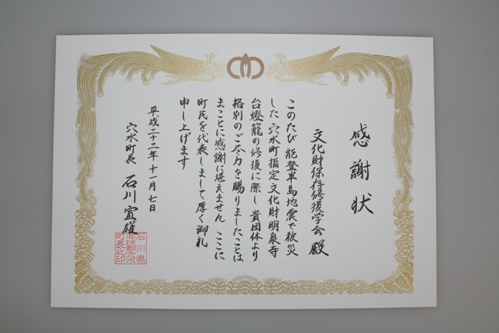 感謝状
文化財保存修復学会 殿
このたび能登半島地震で被災
した穴水町指定文化財明泉寺
台燈籠の修復に際し貴団体より
格別のご尽力を賜りましたことは
まことに感謝に堪えません ここに
町民を代表しまして厚く御礼
申し上げます
平成二十二年十一月七日
穴水町長 石川宣雄